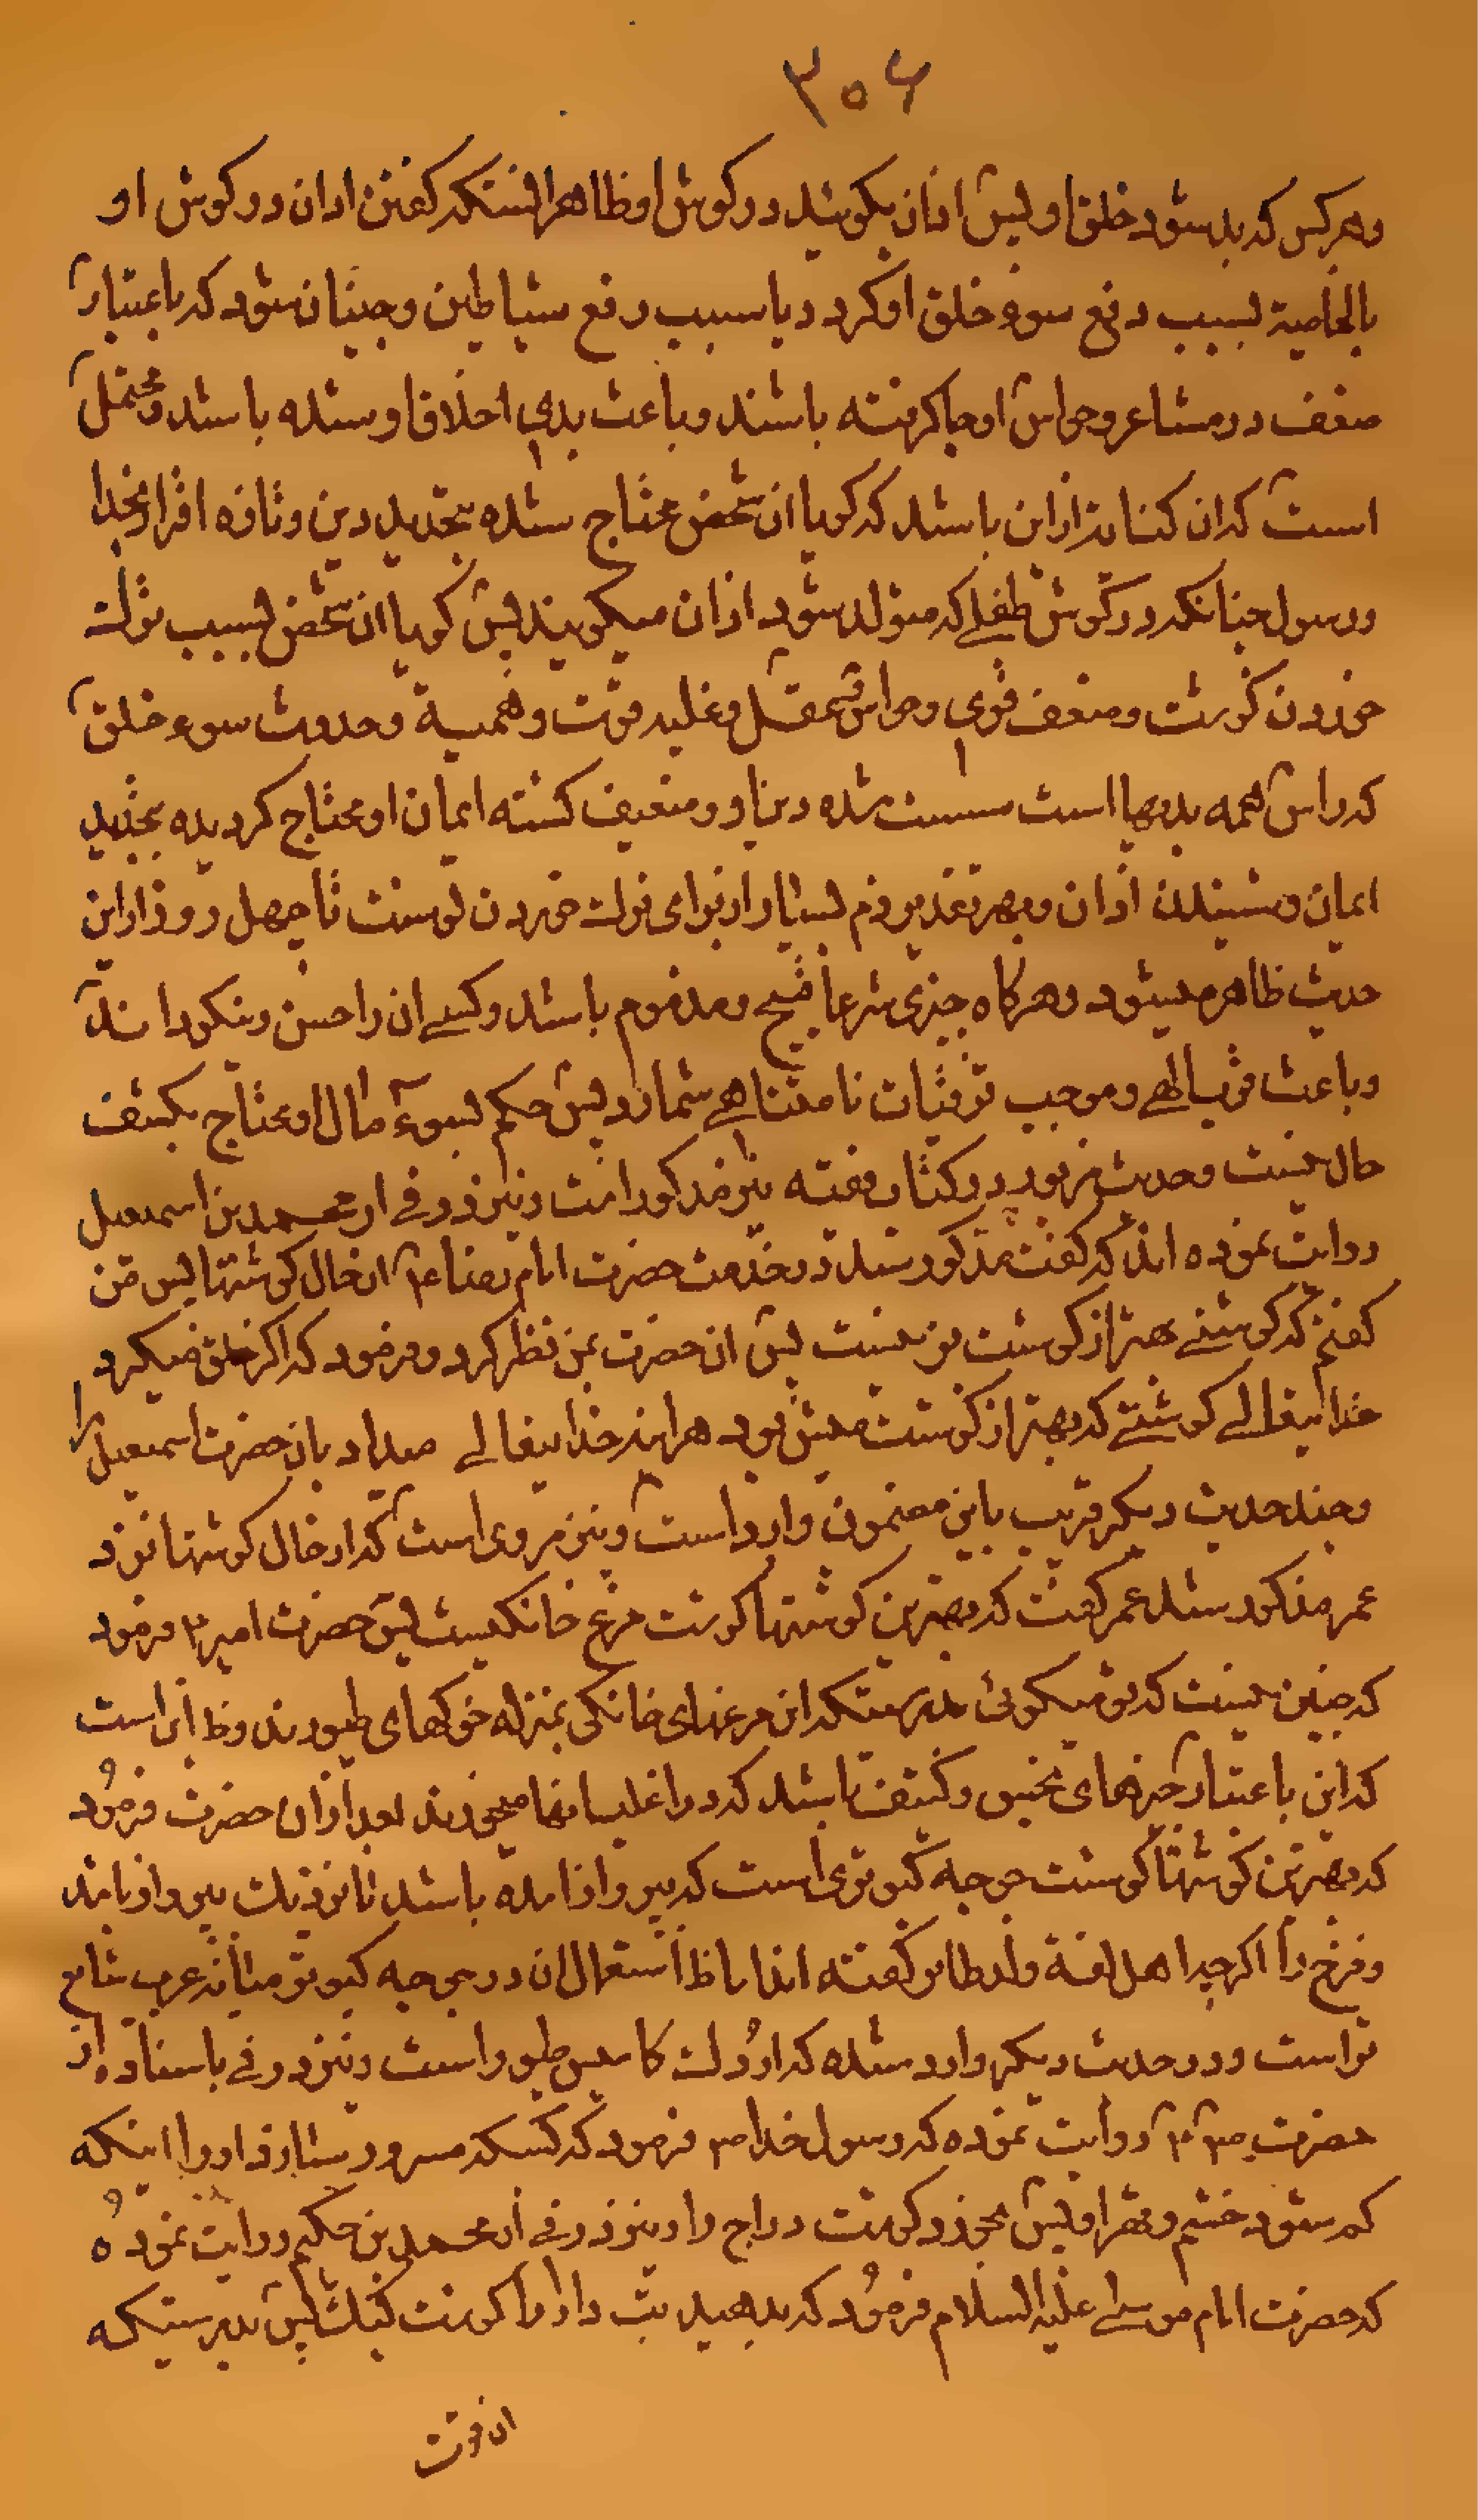 ۳۰۶
وهر کس که بد شود خلق او پس اذان بکوئید در کوش او ظاهرا اینستکه کفتن اذان در کوش او
بالخاصیة بسبب دفع سوء خلق او کردد یا سبب رفع شیاطین وجنیان شود که باعتبار
ضعف در مشاعر وحواس او جا کرفته باشند وباعث بدی اخلاق او شده باشد ومحتمل
است که ان کنایه از این باشد که کویا ان شخص محتاج شده بتجدید دین وتازه اقرار بخدا
ورسول چنانکه در کوش طفلی که متولد شود اذان میکویند پس کویا ان شخص بسبب ترک
خوردن کوشت وضعف قوی وحواس وعقل وغلبه قوت وهمیة وحدوث سوء خلق
که راس همه بدیها است سست شده دین او وضعیف کشته ایمان او محتاج کردیده بتجدید
ایمان وشنیدن اذان وبهر تقدیر ذم بسیار از برای ترک خوردن کوشت تا چهل روز از این
حدیث ظاهر میشود وهرکاه چیزی شرعا قبیح ومذموم باشد وکسی ان را حسن ونیکو داند
وباعث قرب الهی وموجب ترقیات نامتناهی شمارد پس حکم بسوء مآل او محتاج بکشف
حال نیست وحدیث مزبور در کتاب فقیه نیز مذکور است ونیز در فی از محمد بن اسمعیل
روایت نموده اند که کفت مذکور شد در خدمت حضرت امام رضا ع از حال کوشتها پس من
کفتم که کوشتی بهتر از کوشت بز نیست پس ان حضرت بمن نظر کرد وفرمود که اکر خلق میکرد
خدایتعالی کوشتی که بهتر از کوشت میش بود هراینه خدایتعالی میداد بان حضرت اسمعیل را
وچند حدیث دیکر قریب باین مضمون وارد است ونیز مروی است که از حال کوشتها نزد
عمر مذکور شد عمر کفت که بهترین کوشتها کوشت مرغ خانکیست پس حضرت امیر ۴ فرمود
که چنین نیست که تو میکوئی بدرستیکه این مرغهای خانکی بمنزله خوکهای طیورند وظ این است
که این باعتبار چیزهای نجس وکثیف باشد که در اغلب انها میخورند بعد از ان حضرت فرمود
که بهترین کوشتها کوشت جوجه کبوتری است که بپرواز امده باشد تا نزدیک بپرواز باشد
وفرخ را اکرچه اهل لغة ولد طایر کفته اند اما ظ استعمال ان در جوجه کبوتر میانه عرب شایع
تر است ودر حدیث دیکر وارد شده که اردک کامیش طیور است ونیز در فی باسناده از
حضرت ص ۴ روایت نموده که رسول خدا ص فرمود که کسیکه مسرور سازد او را اینکه
کم شود خشم وقهر او پس بخورد کوشت دراج را ونیز در فی از محمد بن حکیم روایت نموده
که حضرت امام موسی علیه السلام فرمود که بدهید تب دار را کوشت کبک پس بدرستیکه
ان قوت